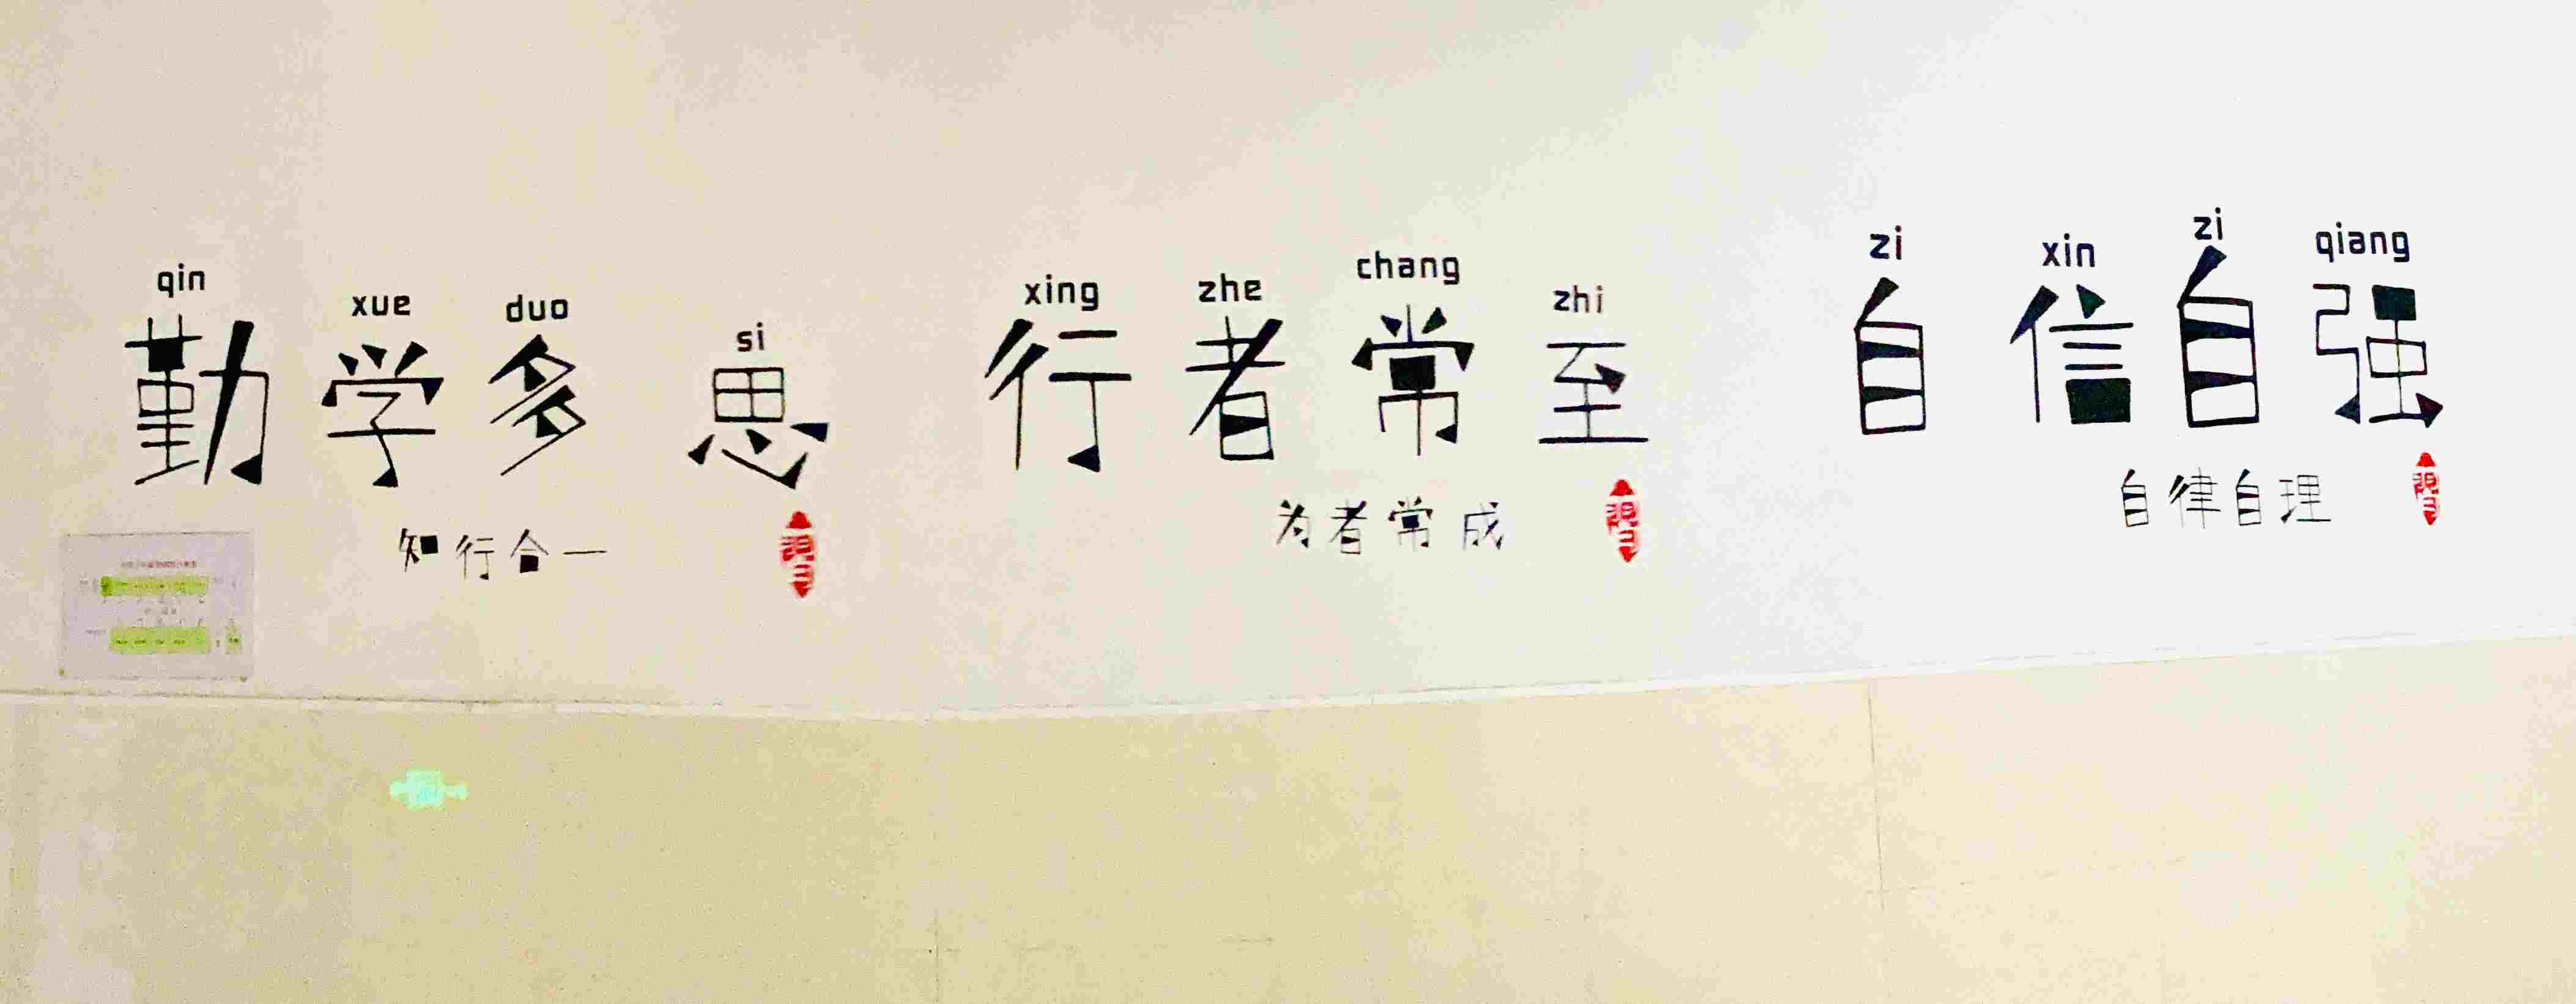 qin xue duo si
勤学多思
知行合一
xing zhe chang zhi
行者常至
为者常成
zi xin zi qiang
自信自强
自律自理